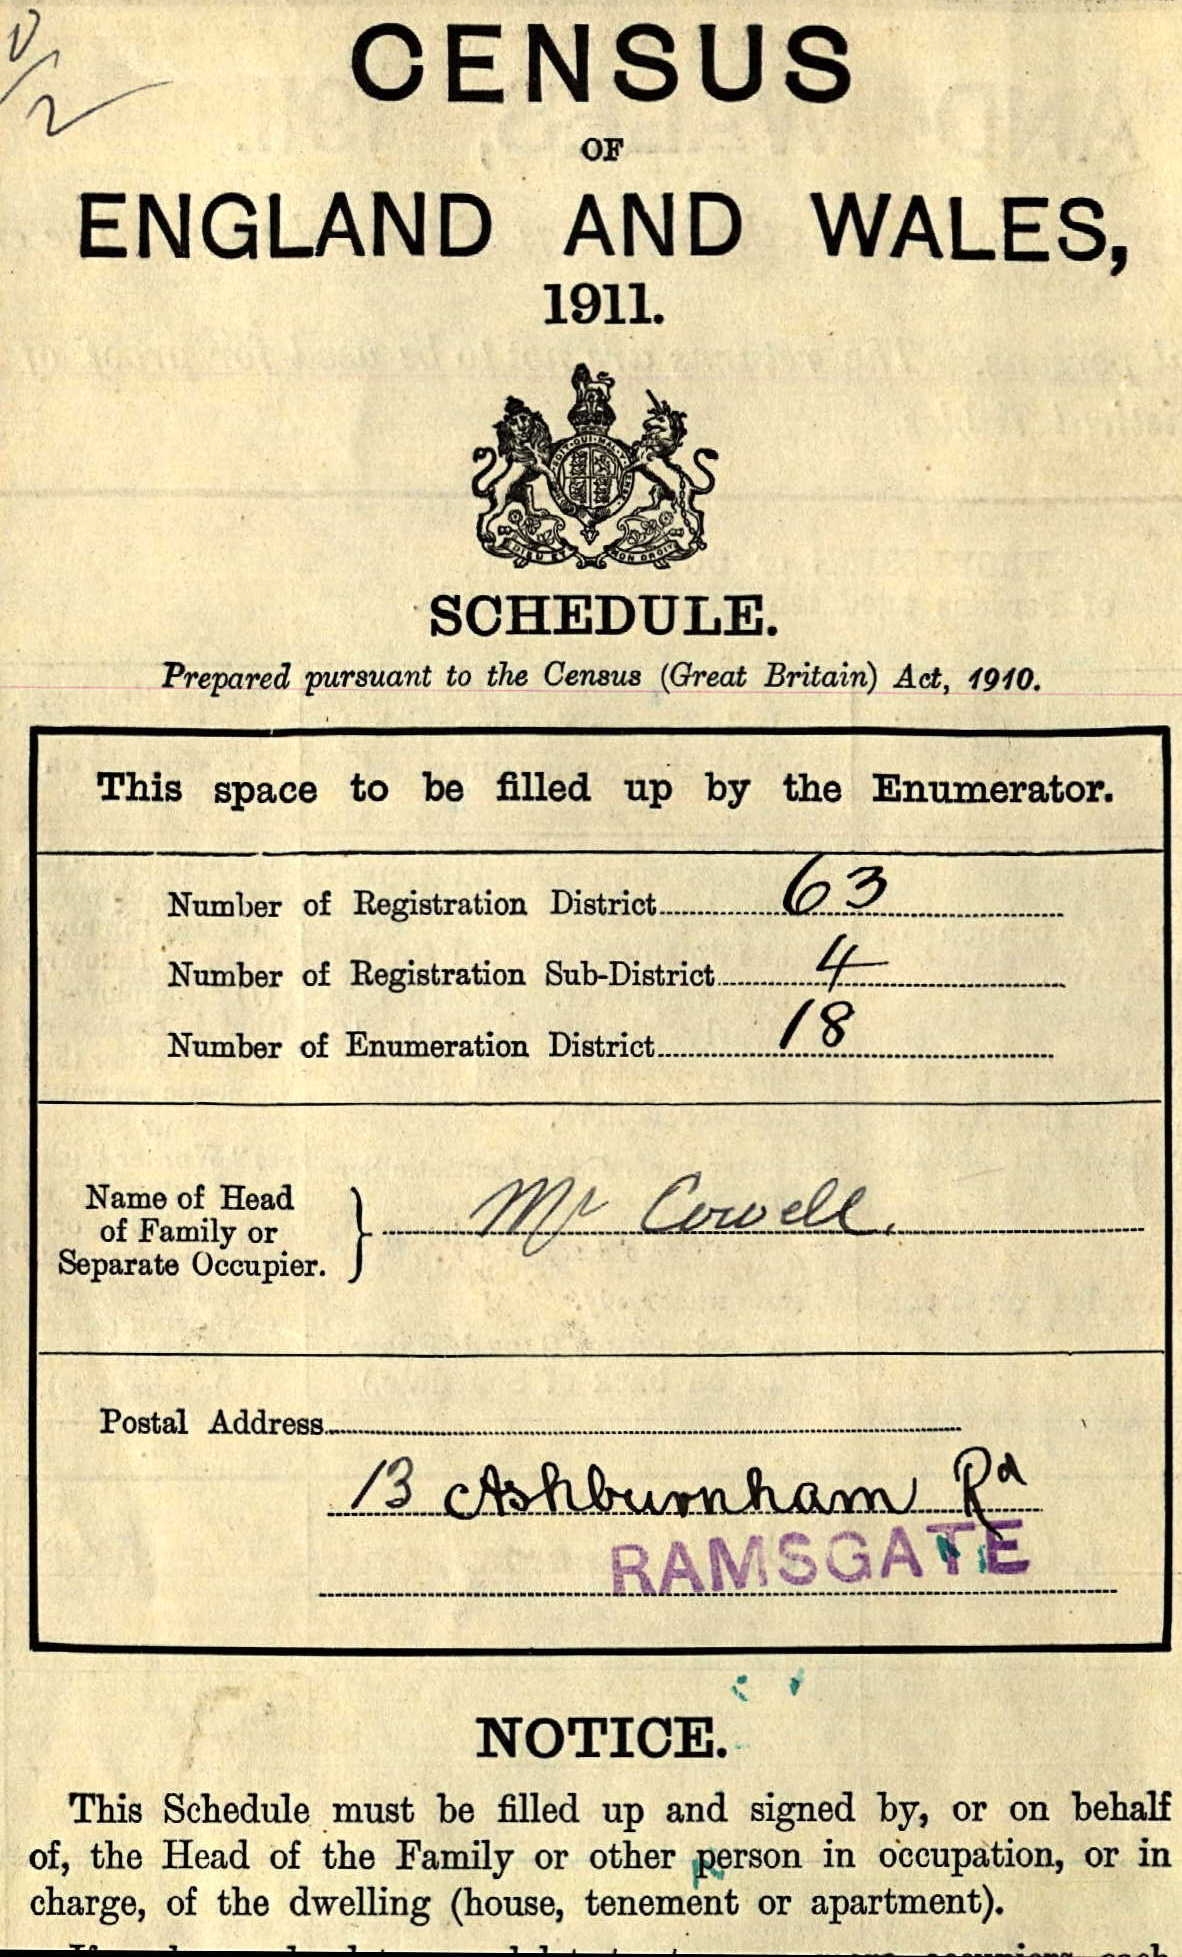 CENSUS
OF
ENGLAND AND WALES,
1911.
DIEU ET MON DROIT
SCHEDULE.
Prepared pursuant to the Census (Great Britain) Act, 1910.
This space to be filled up by the Enumerator.
Number of Registration District 63
Number of Registration Sub-District 4
Number of Enumeration District 18
Name of Head
of Family or
Separate Occupier. } Mr Cowell.
Postal Address
13 Ashburnham Rd
RAMSGATE
NOTICE.
This Schedule must be filled up and signed by, or on behalf
of, the Head of the Family or other person in occupation, or in
charge, of the dwelling (house, tenement or apartment).